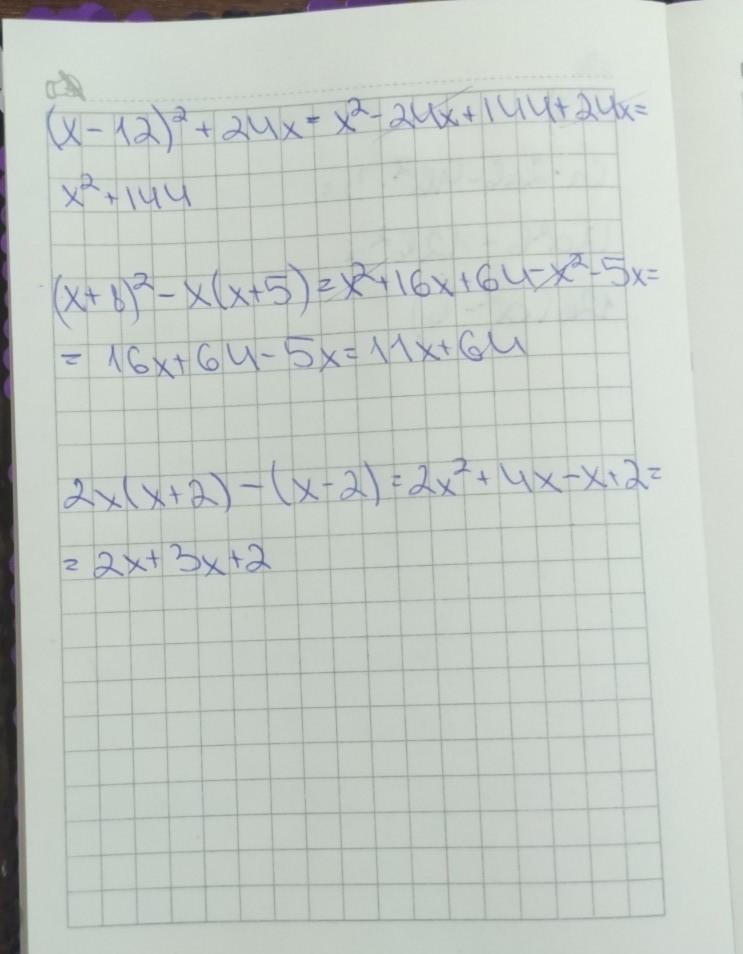 (x-12)²+24x=x²-24x+144+24x=
x²+144
(x+8)²-x(x+5)=x²+16x+64-x²-5x=
=16x+64-5x=11x+64
2x(x+2)-(x-2)=2x²+4x-x+2=
=2x+3x+2